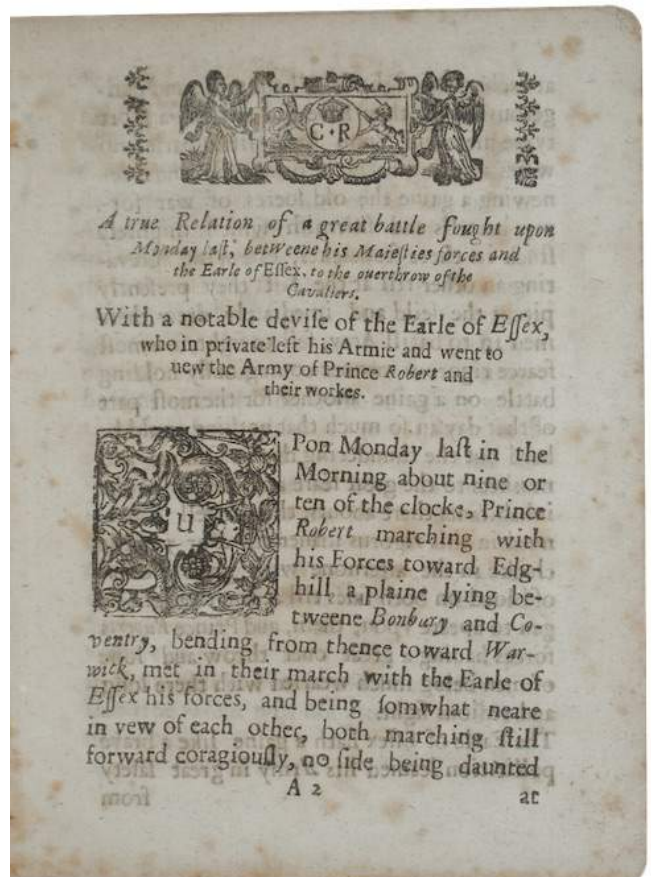 C·R
A true Relation of a great battle fought upon
Monday laſt, betweene his Maieſties forces and
the Earle of Eſſex, to the ouerthrow of the
Cavaliers.
With a notable deviſe of the Earle of Eſſex,
who in private left his Armie and went to
uew the Army of Prince Robert and
their workes.
u
Pon Monday laſt in the
Morning about nine or
ten of the clocke, Prince
Robert marching with
his Forces toward Edg-
hill, a plaine lying be-
tweene Bonbury and Co-
ventry, bending from thence toward War-
wick, met in their march with the Earle of
Eſſex his forces, and being ſomwhat neare
in vew of each other, both marching ſtill
forward coragiouſly, no ſide being daunted
A 2
at